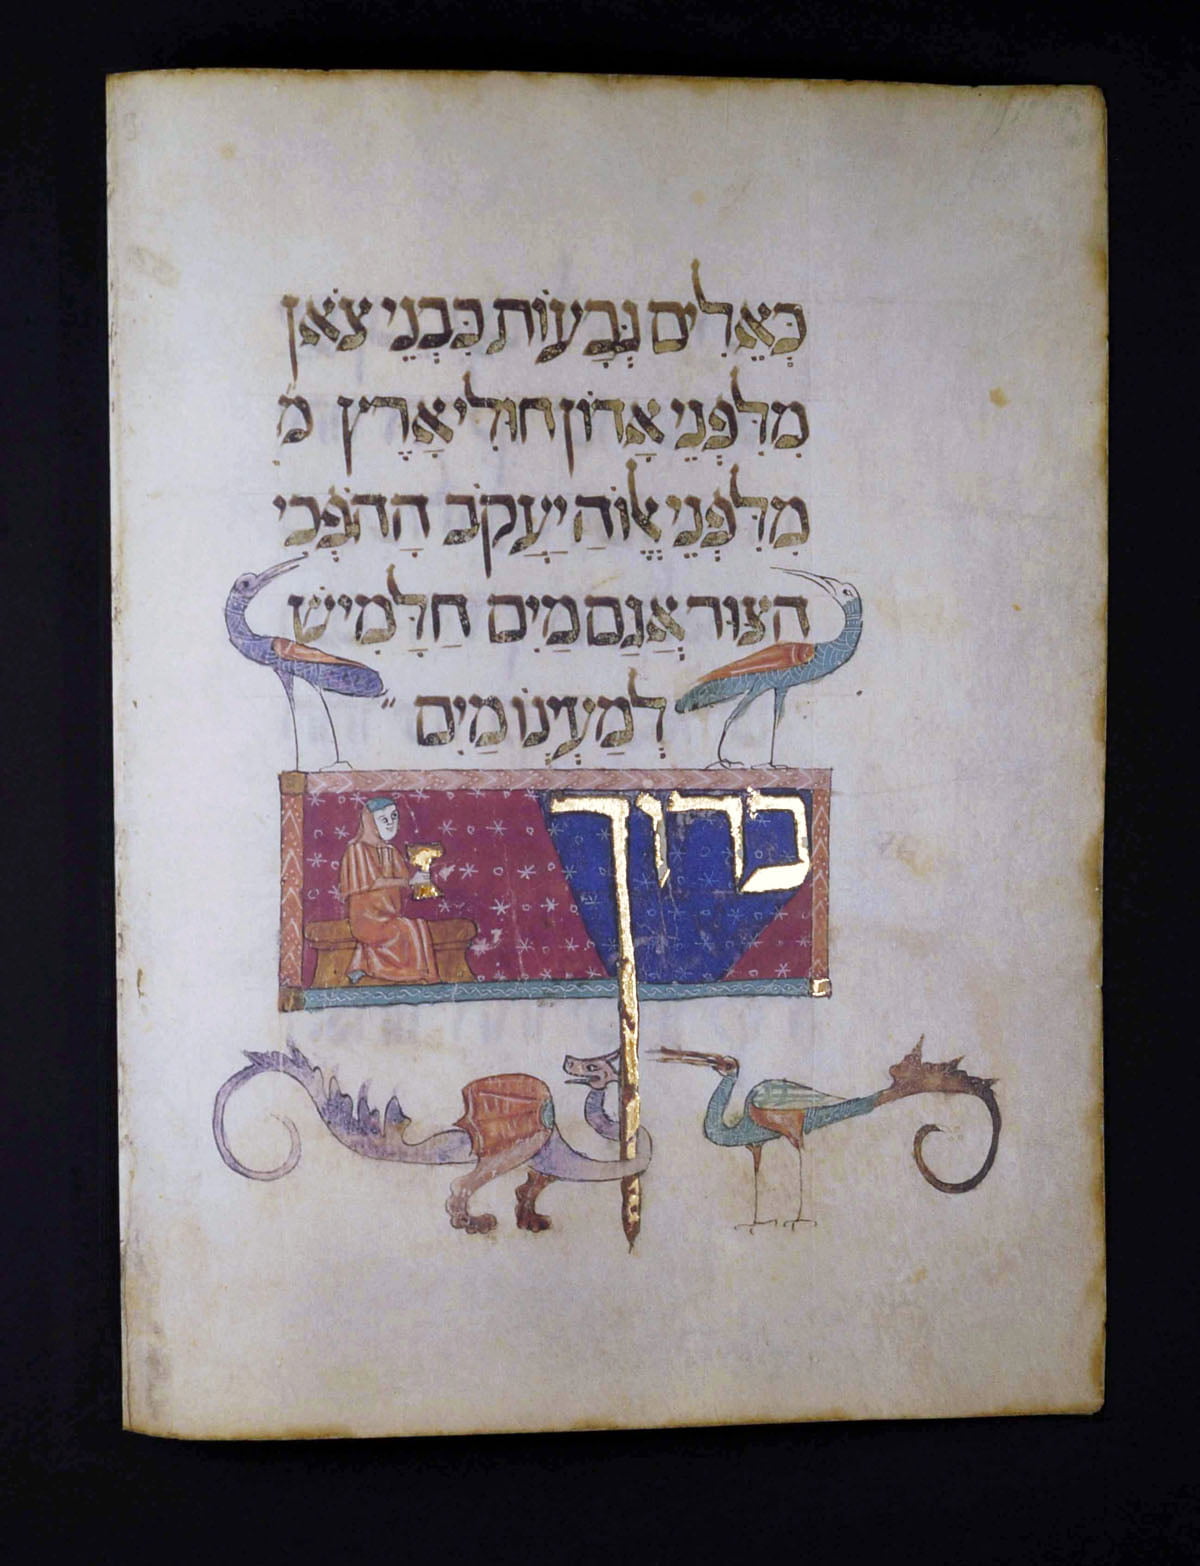 כְּאֵלִים גְּבָעוֹת כִּבְנֵי צֹאן
מִלִּפְנֵי אָדוֹן חוּלִי אָרֶץ מִ
מִלִּפְנֵי אֱלוֹהַ יַעֲקֹב הַהֹפְכִי
הַצּוּר אֲגַם מַיִם חַלָּמִישׁ
לְמַעְיְנוֹ מַיִם ״
ברוך